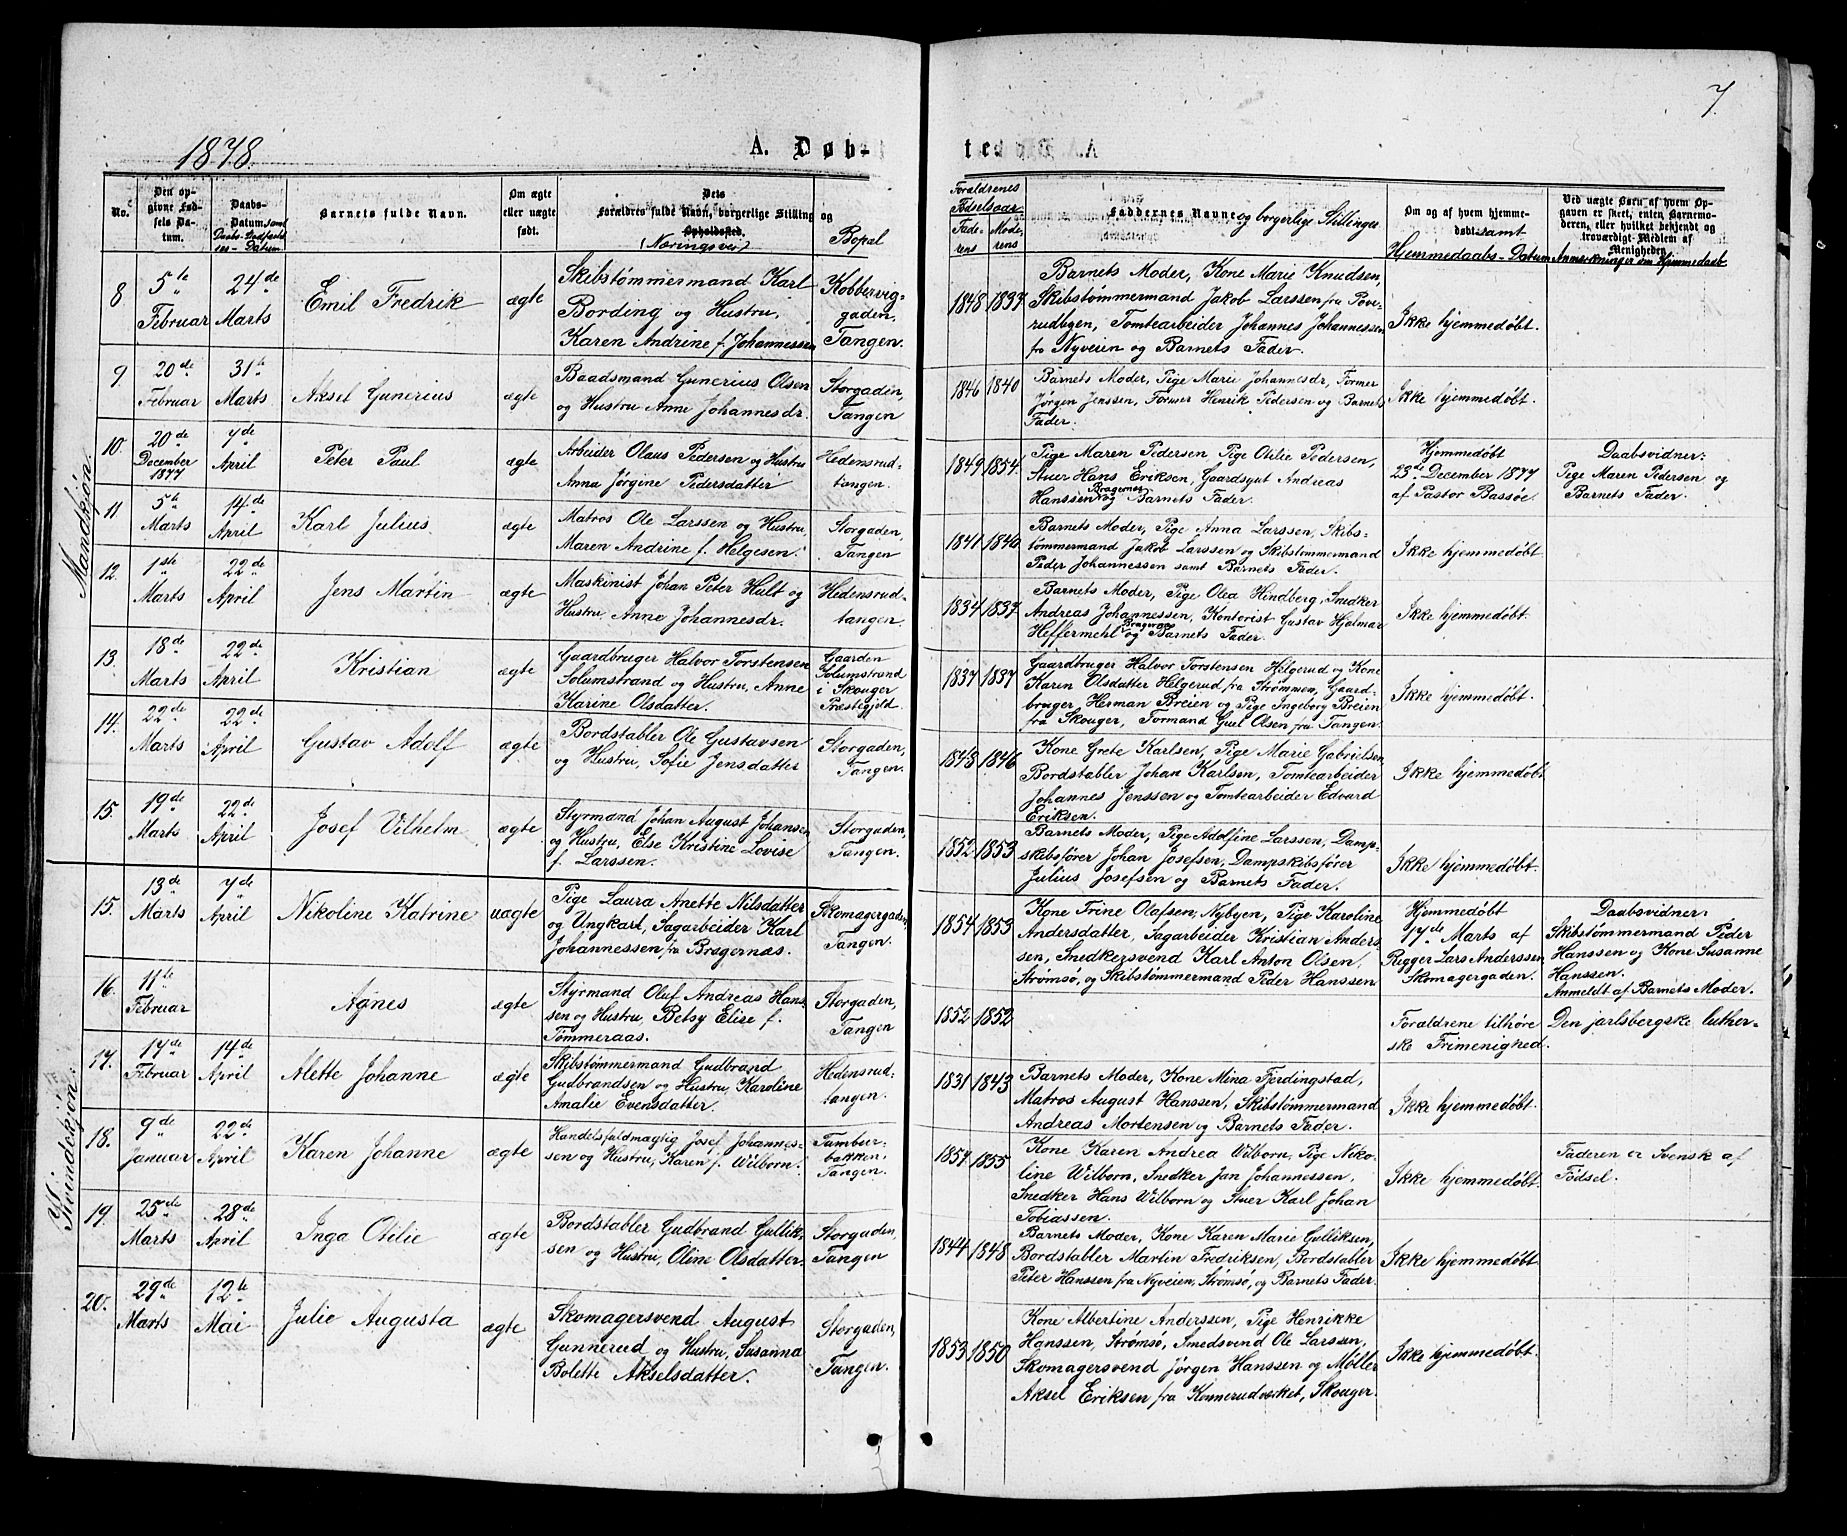 7
1878.
A. Døb-
te
No.
Den op-
givne Fød-
sels Da-
tum.
Daabs-
Datum samt
Daabs-Stadfæstel-
ses-Datum
Barnets fulde Navn.
Om ægte
eller uægte
født.
Dets
Forældres fulde Navn, borgerlige Stilling og
Opholdssted.
(Næringsvei)
Bopæl
Forældrenes
Fødselsaar
Fade-
rens
Mode-
rens
Faddernes Navne og borgerlige Stillinger
Om og af hvem hjemme-
døbt samt
Hjemmedaabs-Datum
Ved uægte Børn af hvem Op-
gaven er skeet, enten Barnemo-
deren, eller hvilket bekjendt og
troværdigt Medlem af
Menigheden.
Anmærkninger om Hjemmedaab
Mandkjøn.
8
5te
Februar
24de
Marts
Emil Fredrik
ægte
Skibstømmermand Karl
Bording og Hustru,
Karen Andrine f. Johannessen
Kobbervig-
gaden,
Tangen.
1848
1837
Barnets Moder, Kone Marie Knudsen,
Skibstømmermand Jakob Larssen fra Pove-
rudbyen, Tomtearbeider Johannes Johannessen
fra Nyveien og Barnets Fader.
Ikke hjemmedøbt.
9
20de
Februar
31te
Marts
Aksel Gunerius
ægte
Baadsmand Gunerius Olsen
og Hustru Anne Johannesdr.
Storgaden,
Tangen
1846
1840
Barnets Moder, Pige Marie Johannesdr, Former
Jørgen Jenssen, Former Henrik Pedersen og Barnets
Fader.
Ikke hjemmedøbt.
10.
20de
December
1877
7de
April
Peter Paul
ægte
Arbeider Olaus Pedersen og Hustru
Anna Jørgine Pedersdatter
Hedensrud-
tangen.
1849
1854.
Pige Maren Pedersen, Pige Otilie Pedersen,
Stuer Hans Eriksen, Gaardsgut Andreas
Hanssen Bragernes og Barnets Fader.
Hjemmedøbt
23de December 1877
af Pastor Bassøe.
Daabsvidner:
Pige Maren Pedersen og
Barnets Fader.
11
5te
Marts
14de
April
Karl Julius
ægte
Matros Ole Larssen og Hustru,
Maren Andrine f. Helgesen.
Storgaden,
Tangen
1841
1840
Barnets Moder, Pige Anna Larssen, Skibs-
tømmermand Jakob Larssen og Skibstømmermand
Peder Johannessen samt Barnets Fader.
Ikke hjemmedøbt.
12.
1ste
Marts
22de
April
Jens Martin
ægte
Maskinist Johan Peter Hult og
Hustru, Anne Johannesdr.
Hedensrud-
tangen.
1834
1837
Barnets Moder, Pige Olea Hindberg, Snedker
Andreas Johannessen, Kontorist Gustav Hjalmar
Heffermehl Bragernes og Barnets Fader.
Ikke hjemmedøbt.
13.
18de
Marts
22de
April
Kristian
ægte
Gaardbruger Halvor Torstensen
Solumstrand og Hustru, Anne
Karine Olsdatter.
Gaarden
Solumstrand
i Skouger
Præstegjeld.
1837
1837
Gaardbruger Halvor Torstensen Helgerud og Kone
Karen Olsdatter Helgerud fra Strømmen, Gaard-
bruger Herman Breien og Pige Ingeborg Breien
fra Skouger, Formand Guel Olsen fra Tangen.
Ikke hjemmedøbt.
14.
22de
Marts
22de
April
Gustav Adolf
ægte
Bordstabler Ole Gustavsen
og Hustru, Sofie Jensdatter
Storgaden,
Tangen.
1843
1846
Kone Grete Karlsen, Pige Marie Gabrielsen,
Bordstabler Johan Karlsen, Tomtearbeider
Johannes Jenssen og Tomtearbeider Edvard
Eriksen.
Ikke hjemmedøbt.
15.
19de
Marts
22de
April
Josef Vilhelm
ægte
Styrmand Johan August Johansen
og Hustru, Else Kristine Lovise
f. Larssen.
Storgaden,
Tangen.
1852
1853
Barnets Moder, Pige Adolfine Larssen, Damp-
skibsfører Johan Josefsen, Dampskibsfører
Julius Josefsen og Barnets Fader.
Ikke hjemmedøbt.
Kvindekjøn:
15.
13de
Marts
7de
April
Nikoline Katrine
uægte
Pige Laura Anette Nilsdatter
og Ungkarl, Sagarbeider Karl
Johannessen fra Bragernæs.
Skomagergaden,
Tangen.
1854
1853
Kone Trine Olafsen, Nybyen, Pige Karoline
Andersdatter, Sagarbeider Kristian Anders-
sen, Snedkersvend Karl Anton Olsen,
Strømsø, og Skibstømmermand Peder Hanssen
Hjemmedøbt
17de Marts af
Rigger Lars Anderssen
Skomagergaden.
Daabsvidner:
Skibstømmermand Peder
Hanssen og Kone Susanne
Hanssen.
Anmeldt af Barnets Moder.
16.
11te
Februar
Agnes
ægte
Styrmand Oluf Andreas Hans-
sen og Hustru, Betsy Elise f.
Tømmeraas.
Storgaden,
Tangen
1852
1852
Forældrene tilhøre Den jarlsbergske luther-
ske Frimenighed.
17.
17de
Februar
14de
April
Alette Johanne
ægte
Skibstømmermand Gudbrand
Gudbrandsen og Hustru, Karoline
Amalie Evensdatter.
Hedensrud-
tangen.
1831
1843
Barnets Moder, Kone Mina Fjerdingstad,
Matros August Hanssen, Skibstømmermand
Andreas Mortensen og Barnets Fader.
Ikke hjemmedøbt.
18.
9de
Januar
22de
April
Karen Johanne
ægte
Handelsfuldmægtig Josef Johannes-
sen og Hustru, Karen f. Wilborn.
Tambur-
bakken,
Tangen.
1854
1855
Kone Karen Andrea Wilborn, Pige Niko-
line Wilborn, Snedker Jan Johannessen,
Snedker Hans Wilborn og Stuer Karl Johan
Tobiassen.
Ikke hjemmedøbt.
Faderen er Svensk af
Fødsel.
19.
25de
Marts
28de
April
Inga Otilie
ægte
Bordstabler Gudbrand Gullik-
sen og Hustru, Oline Olsdatter.
Storgaden,
Tangen
1844
1848
Barnets Moder, Kone Karen Marie Gulliksen,
Bordstabler Martin Fredriksen, Bordstabler
Peter Hanssen fra Nyveien, Strømsø, og Barnets Fader.
Ikke hjemmedøbt.
20.
29de
Marts
12te
Mai
Julie Augusta
ægte
Skomagersvend August
Gunnerud og Hustru, Susanna
Bolette Akselsdatter.
Storgaden,
Tangen.
1853
1850
Kone Albertine Anderssen, Pige Henrikke
Hanssen, Strømsø, Smedsvend Ole Larssen,
Skomagersvend Jørgen Hanssen og Møller
Aksel Eriksen fra Konnerudværket, Skouger.
Ikke hjemmedøbt.